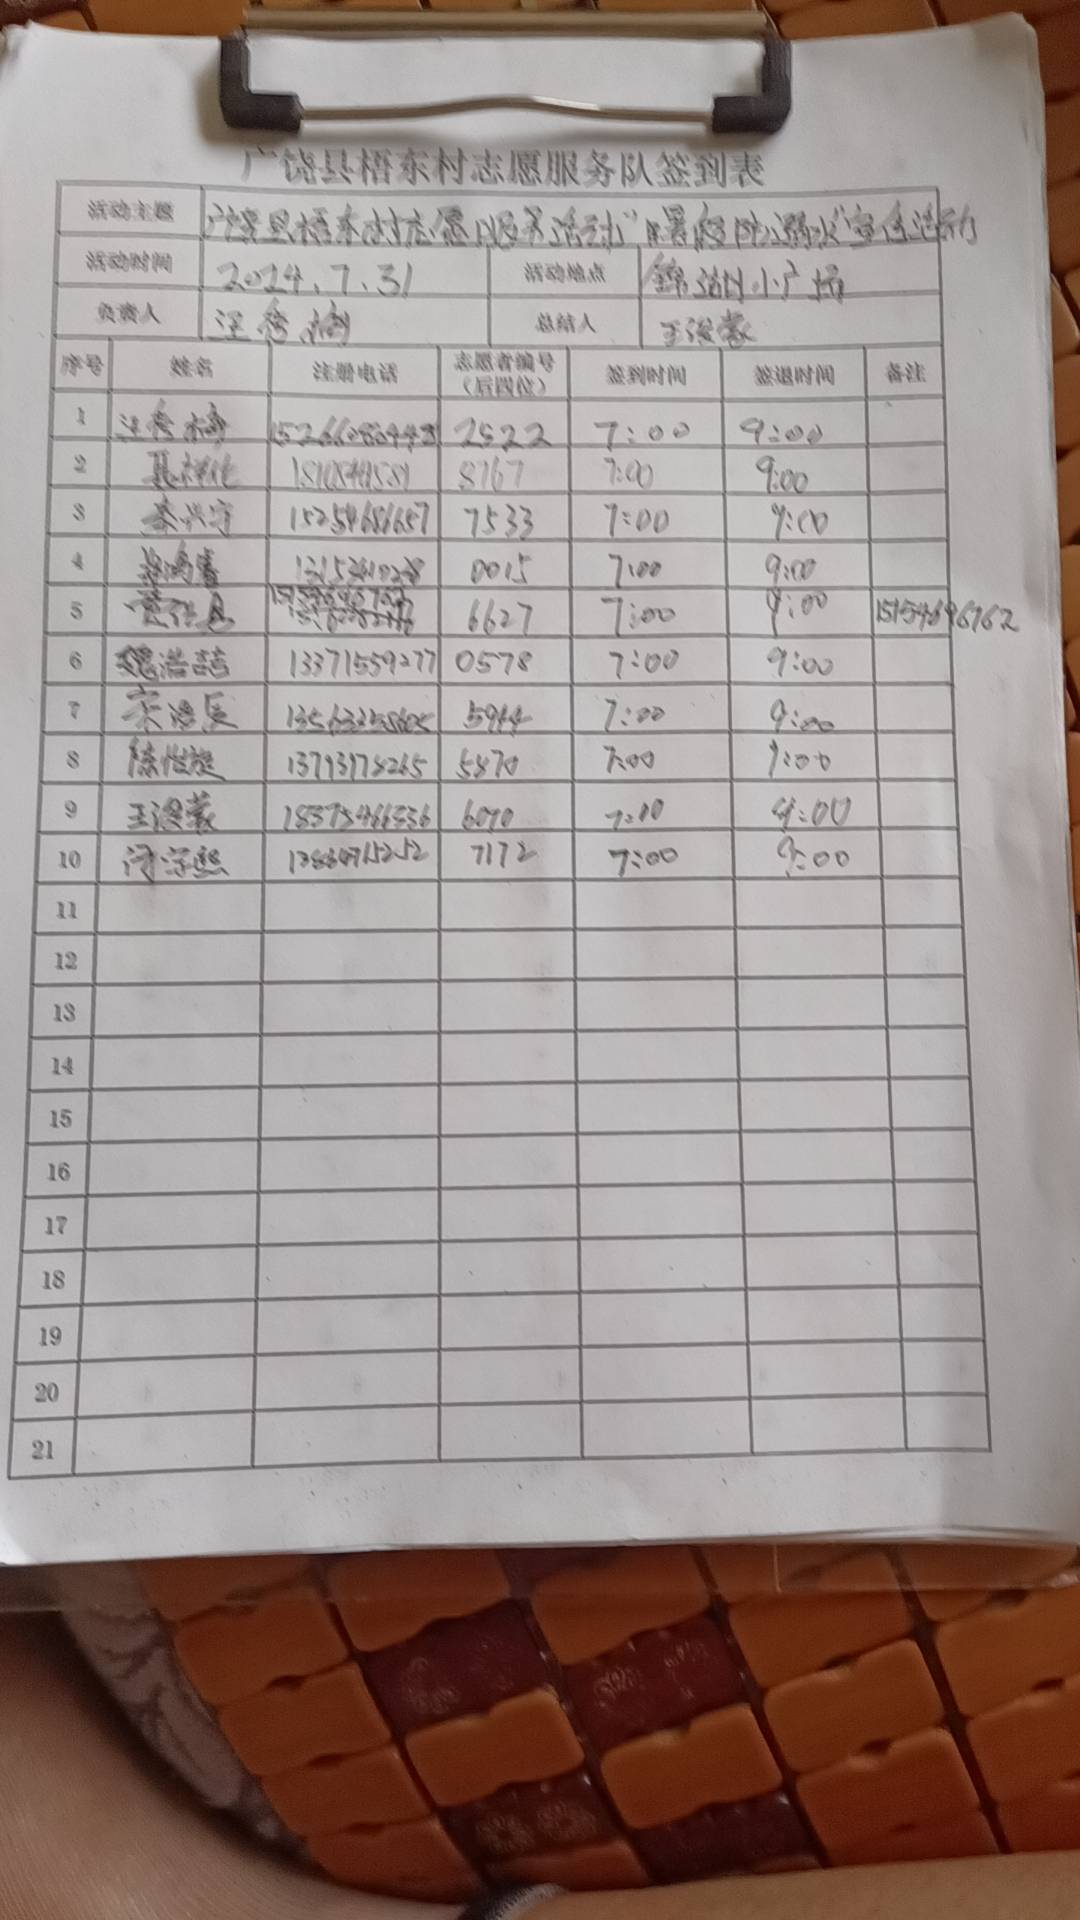 广饶县梧东村志愿服务队签到表
活动主题 广饶县梧东村志愿服务活动"暑假防溺水"宣传活动
活动时间 2024.7.31 活动地点 锦湖小广场
负责人 汪秀梅 总结人 王浚蒙
序号 姓名 注册电话 志愿者编号（后四位） 签到时间 签退时间 备注
1 汪秀梅 2522 7:00 9:00
2 8767 7:00 9:00
3 15254686657 7533 7:00 9:00
4 0015 7:00 9:00
5 6627 7:00 9:00 15154696762
6 魏浩喆 13371559277 0578 7:00 9:00
7 宋浩辰 7:00 9:00
8 13793178265 5870 7:00 9:00
9 王浚蒙 6070 7:00 9:00
10 7172 7:00 9:00
11
12
13
14
15
16
17
18
19
20
21